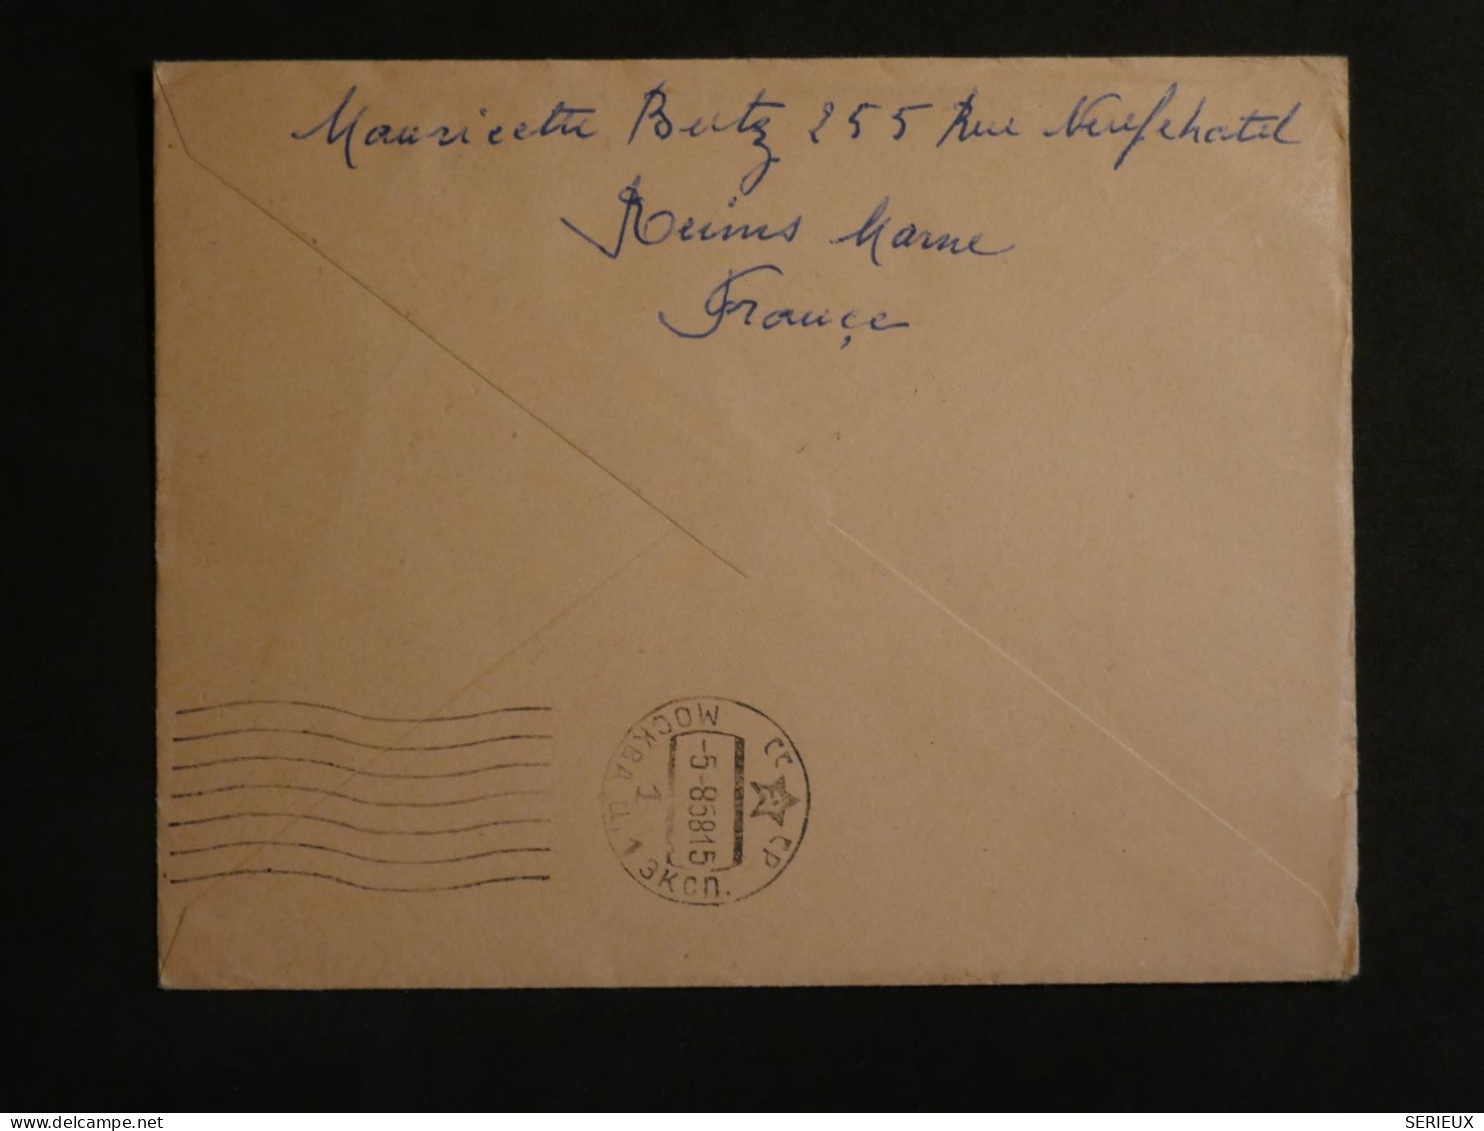 Mauricette Butz 255 Rue Neufchatel
Reims Marne
Françe
МОСКВА П. 1 ЭКСП.
СССР
1
-5-868 15
delcampe.net
SERIEUX